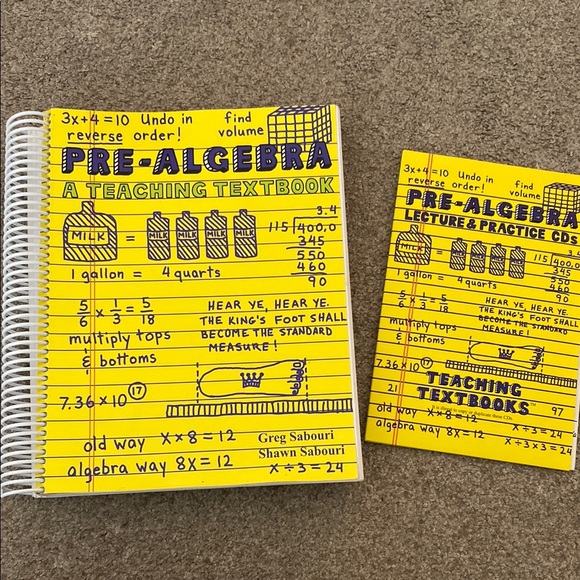 3x+4=10 Undo in find
reverse order! volume
PRE-ALGEBRA
A TEACHING TEXTBOOK
3.4
MILK = MILK MILK MILK MILK 115 400.0
345
550
1 gallon = 4 quarts 460
90
5/6 x 1/3 = 5/18
HEAR YE, HEAR YE.
THE KING'S FOOT SHALL
BECOME THE STANDARD
MEASURE!
multiply tops
& bottoms
7.36 x 10 17
old way X x 8 = 12
algebra way 8X = 12
Greg Sabouri
Shawn Sabouri
X ÷ 3 = 24
3x+4=10 Undo in find
reverse order! volume
PRE-ALGEBRA
LECTURE & PRACTICE CDs
3.4
MILK = MILK MILK MILK MILK 115 400.0
345
550
1 gallon = 4 quarts 460
90
5/6 x 1/3 = 5/18
HEAR YE, HEAR YE.
THE KING'S FOOT SHALL
BECOME THE STANDARD
MEASURE!
multiply tops
& bottoms
7.36 x 10 17
TEACHING
TEXTBOOKS™
21 97
It is illegal to copy or duplicate these CDs.
old way X x 8 = 12 X ÷ 3 = 24
algebra way 8X = 12 X ÷ 3 x 3 = 24